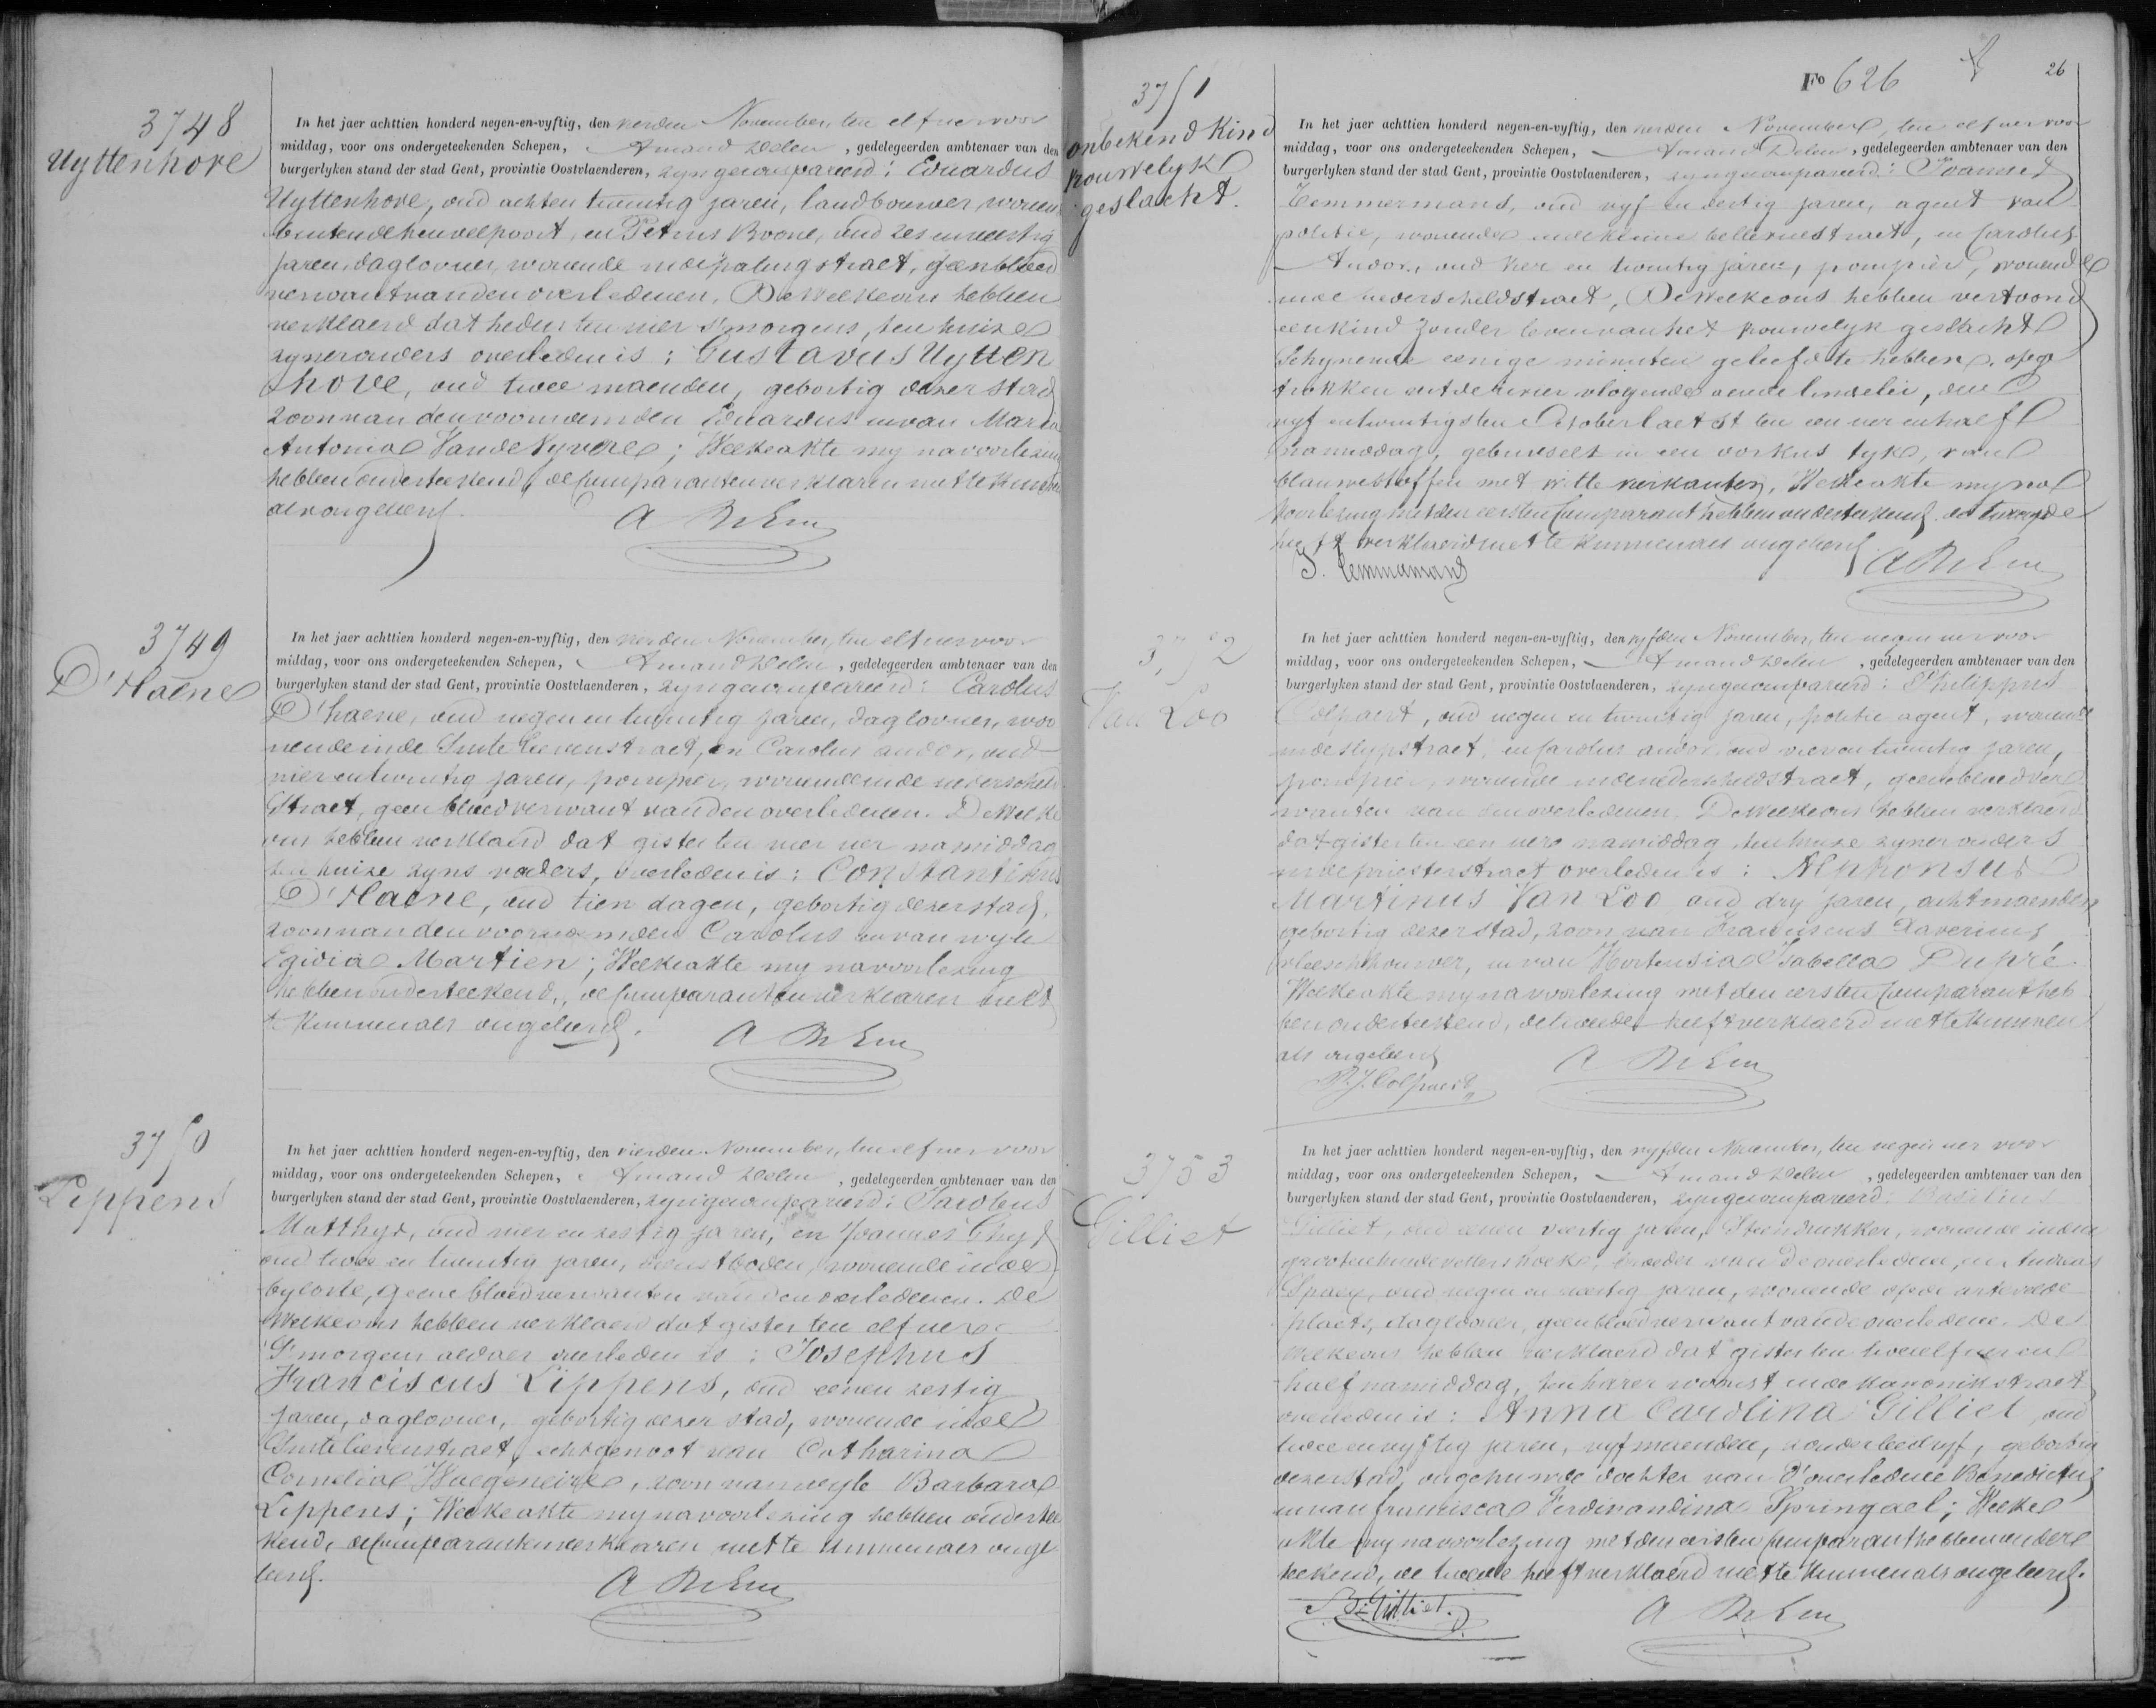 3748
Uyttenhove
In het jaer achttien honderd negen-en-vyftig, den vierden November, ten elf uer voor
middag, voor ons ondergeteekenden Schepen, Amand Delen, gedelegeerden ambtenaer van den
burgerlyken stand der stad Gent, provintie Oostvlaenderen, zyn gecompareerd: Eduardus
Uyttenhove, oud achten twintig jaren, landbouwer, woonen
buiten de heuvelpoort, en Petrus Boone, oud zes en veertig
jaren, daglooner, wonende in de palingstraet, geen bloed
verwant van den overledenen. De welke ons hebben
verklaerd dat heden ten vier s'morgens, ten huize
zyner ouders overleden is: Gustavus Uytten
hove, oud twee maenden, geboortig dezer stad
zoon van den voornoemden Eduardus en van Maria
Antonia Vande Vyvere; Welke akte my na voorlezing
hebben onderteekend, de comparanten verklaren niet te kunnen
als ongeleerd.
3749
D'Haene
In het jaer achttien honderd negen-en-vyftig, den vierden November, ten elf uer voor
middag, voor ons ondergeteekenden Schepen, Amand Delen, gedelegeerden ambtenaer van den
burgerlyken stand der stad Gent, provintie Oostvlaenderen, zyn gecompareerd: Carolus
D'haene, oud negen en twintig jaren, daglooner, woo
nende in de Sinte Lievenstraet, en Carolus Andor, oud
vier en twintig jaren, pompier, woonende in de nederscheld
straet, geen bloedverwant van den overledenen. De welke
ons hebben verklaerd dat gister ten vier uer namiddag
ten huize zyns vaders, overleden is: Constantinus
D'Haene, oud tien dagen, geboortig dezer stad,
zoon van den voornoemden Carolus en van wyle
Egidia Martien; Welke akte my na voorlezing
hebben onderteekend, de comparanten verklaren niet
te kunnen als ongeleerd.
3750
Lippens
In het jaer achttien honderd negen-en-vyftig, den vierden November, ten elf uer voor
middag, voor ons ondergeteekenden Schepen, Amand Delen, gedelegeerden ambtenaer van den
burgerlyken stand der stad Gent, provintie Oostvlaenderen, zyn gecompareerd: Jacobus
Matthys, oud vier en zestig jaren, en Joannes
oud twee en twintig jaren, dienstboden, woonende in de
byloke, geene bloedverwanten van den overledenen. De
welke ons hebben verklaerd dat gister ten elf uer
S'morgens aldaer overleden is: Josephus
Franciscus Lippens, oud eenen zestig
jaren, daglooner, geboortig dezer stad, wonende in de
Sinte lievenstraet, echtgenoot van Catharina
Cornelia Haegeneire, zoon van wyle Barbara
Lippens; Welke akte my na voorlezing hebben onderte
kend, de comparanten verklaren niet te kunnen als onge
leerd.
Fo 626
26
3751
onbekend Kind
vrouwelyk
geslacht.
In het jaer achttien honderd negen-en-vyftig, den vierden November, ten elf uer voor
middag, voor ons ondergeteekenden Schepen, Amand Delen, gedelegeerden ambtenaer van den
burgerlyken stand der stad Gent, provintie Oostvlaenderen, zyn gecompareerd: Joannes
Temmermans, oud vyf en dertig jaren, agent van
politie, wonende in de kleine bellevuestraet, en Carolus
Andor, oud vier en twintig jaren, pompier, wonende
in de nederscheldstraet, De welke ons hebben vertoond
een kind zonder leven van het vrouwelyk geslacht
Schynende eenige minuten geleefd te hebben, opge
trokken uit de rivier vlogende aen de lindelei, den
vyf en twintigsten October laetst ten een uer en half
namiddag, gebusseld in een oorkus tyk, van
blauwe stoffen met witte vierkanten, Welke akte my na
voorlezing met den eersten Comparant hebben onderteekend, de tweede
heeft verklaerd niet te kunnen als ongeleerd.
J. Temmermans
3752
Van Loo
In het jaer achttien honderd negen-en-vyftig, den vyfden November, ten negen uer voor
middag, voor ons ondergeteekenden Schepen, Amand Delen, gedelegeerden ambtenaer van den
burgerlyken stand der stad Gent, provintie Oostvlaenderen, zyn gecompareerd: Philippus
Colpaert, oud negen en twintig jaren, politie agent, wonende
in de slypstraet, en Carolus Andor oud vier en twintig jaren,
pompier, wonende in de nederscheldstraet, geen bloedver
wanten van den overledenen. De welke ons hebben verklaerd
dat gister ten een uer namiddag ten huize zyner ouders
in de priesterstraet overleden is: Alphonsus
Martinus Van Loo, oud dry jaren, acht maenden
geboortig dezer stad, zoon van Franciscus Xaverius,
vleeschhouwer, en van Hortensia Isabella Dupré.
Welke akte my na voorlezing met den eersten Comparant heb
ben onderteekend, de tweede heeft verklaerd niet te kunnen
als ongeleerd
P. J. Colpaert
3753
Gilliet
In het jaer achttien honderd negen-en-vyftig, den vyfden November, ten negen uer voor
middag, voor ons ondergeteekenden Schepen, Amand Delen, gedelegeerden ambtenaer van den
burgerlyken stand der stad Gent, provintie Oostvlaenderen, zyn gecompareerd: Basilius
Gilliet, oud eenen veertig jaren, Steendrukker, woonende in den
broeder van de overledene, en Andreas
Spaey, oud negen en veertig jaren, wonende op de artevelde
plaets, daglooner, geen bloedverwant van de overledene. De
welke ons hebben verklaerd dat gister ten twaelf uer en
half namiddag, ten harer woonst in de kanonikstraet
overleden is: Anna Carolina Gilliet, oud
twee en vyftig jaren, vyf maenden, zonder bedryf, geboortig
dezer stad, ongehuwde dochter van d'overledene Benedictus
en van Francisca Ferdinandina Springael; Welke
akte my na voorlezing met den eersten comparant hebben onder
teekend, de tweede heeft verklaerd niet te kunnen als ongeleerd.
B. Gilliet.